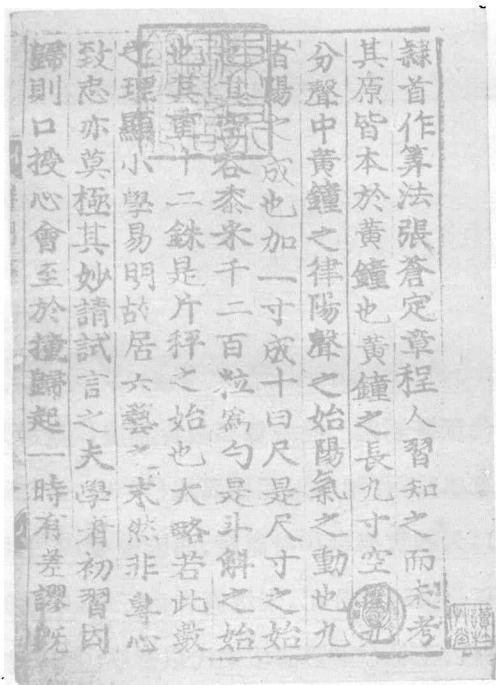 隷首作筭法張蒼定章程人習知之而未考
其原皆本於黄鐘也黄鐘之長九寸空九
分聲中黄鐘之律陽聲之始陽氣之動也九
者陽之成也加一寸成十曰尺是尺寸之始
也其容黍米千二百粒爲勺是斗斛之始
也其重十二銖是斤秤之始也大略若此數
之理顯小學易明故居六藝之末然非專心
致志亦莫極其妙請試言之夫學者初習因
歸則口授心會至於撞歸起一時有差謬旣